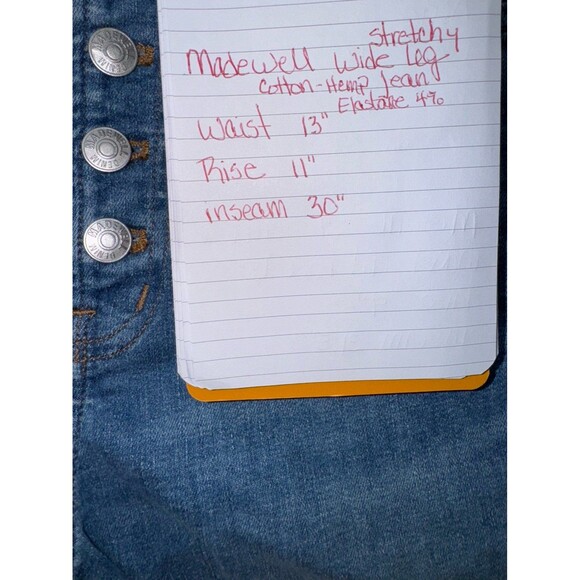 stretchy
Madewell Wide Leg
Cotton-Hemp Jean
Elastane 4%
Waist 13"
Rise 11"
inseam 30"
MADEWELL DENIM
MADEWELL DENIM
MADEWELL DENIM